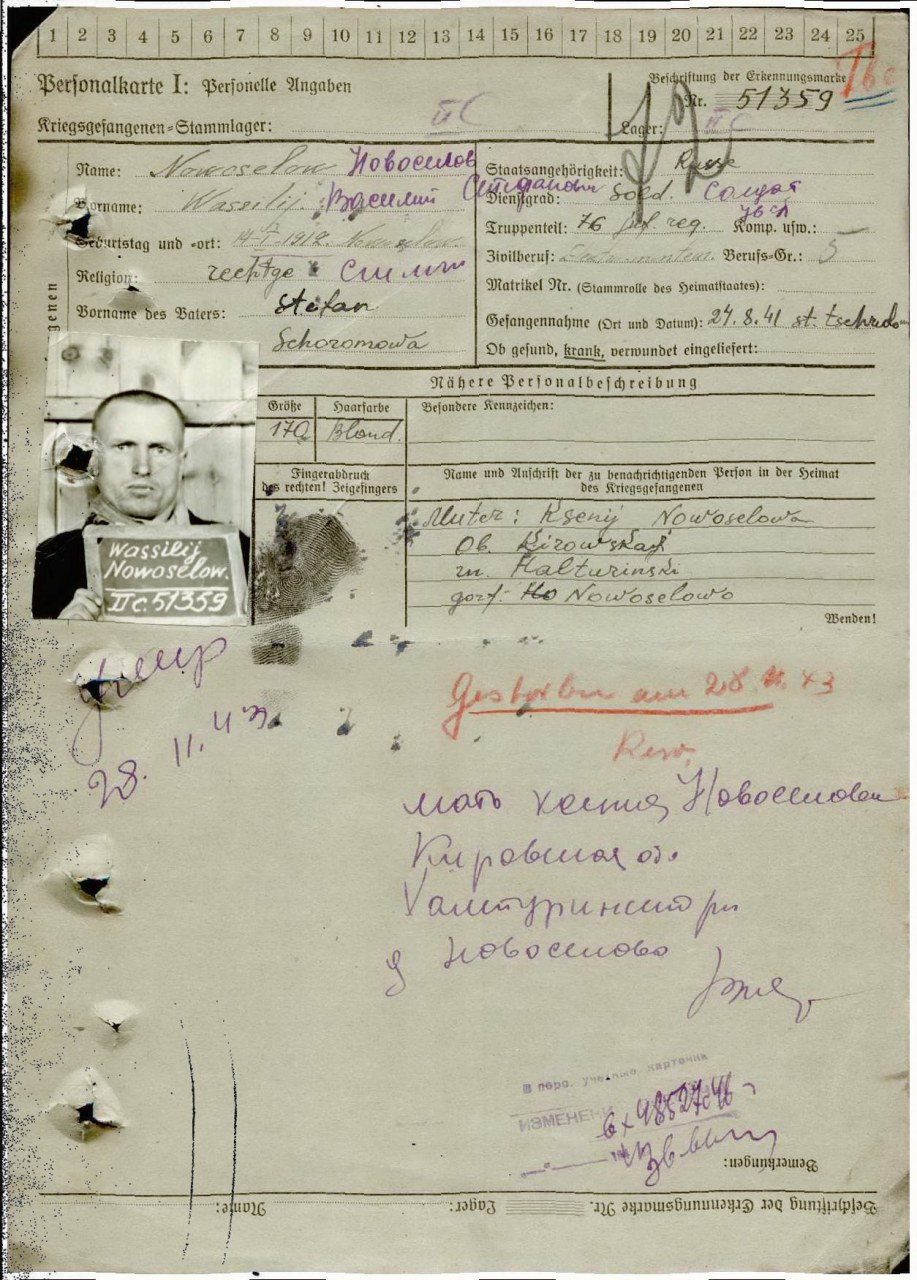 1 2 3 4 5 6 7 8 9 10 11 12 13 14 15 16 17 18 19 20 21 22 23 24 25
Personalkarte I: Personelle Angaben
Kriegsgefangenen-Stammlager: II C
Beschriftung der Erkennungsmarke
Nr. 51359
Tbc
Lager: II C
Name: Nowoselow Новоселов
Vorname: Wassilij Василий Степанович
Geburtstag und -ort: 1912
Religion: rechtge
Vorname des Vaters: Stefan
Schoromowa
Staatsangehörigkeit: Russe
Dienstgrad: Sold. Солдат
Truppenteil: 76 reg. Komp. usw.:
Zivilberuf: Berufs-Gr.: 5
Matrikel Nr. (Stammrolle des Heimatstaates):
Gefangennahme (Ort und Datum): 24.8.41 st.
Ob gesund, krank, verwundet eingeliefert:
genen
Nähere Personalbeschreibung
Größe Haarfarbe Besondere Kennzeichen:
170 Blond.
Fingerabdruck
des rechten! Zeigefingers
Name und Anschrift der zu benachrichtigenden Person in der Heimat
des Kriegsgefangenen
Muter: Ksenij Nowoselowa
Ob. Kirowskaj
Halturinski
Nowoselowo
Wenden!
Wassilij
Nowoselow.
II C. 51359
умер
28. 11. 43
Gestorben am 28. 11. 43
Rev.
мать Ксения Новоселова
Кировская об.
Халтурински рн
д Новоселово
в перс. учетные карточки
ИЗМЕНЕН
Bemerkungen:
Beschriftung der Erkennungsmarke Nr. Lager: Name: